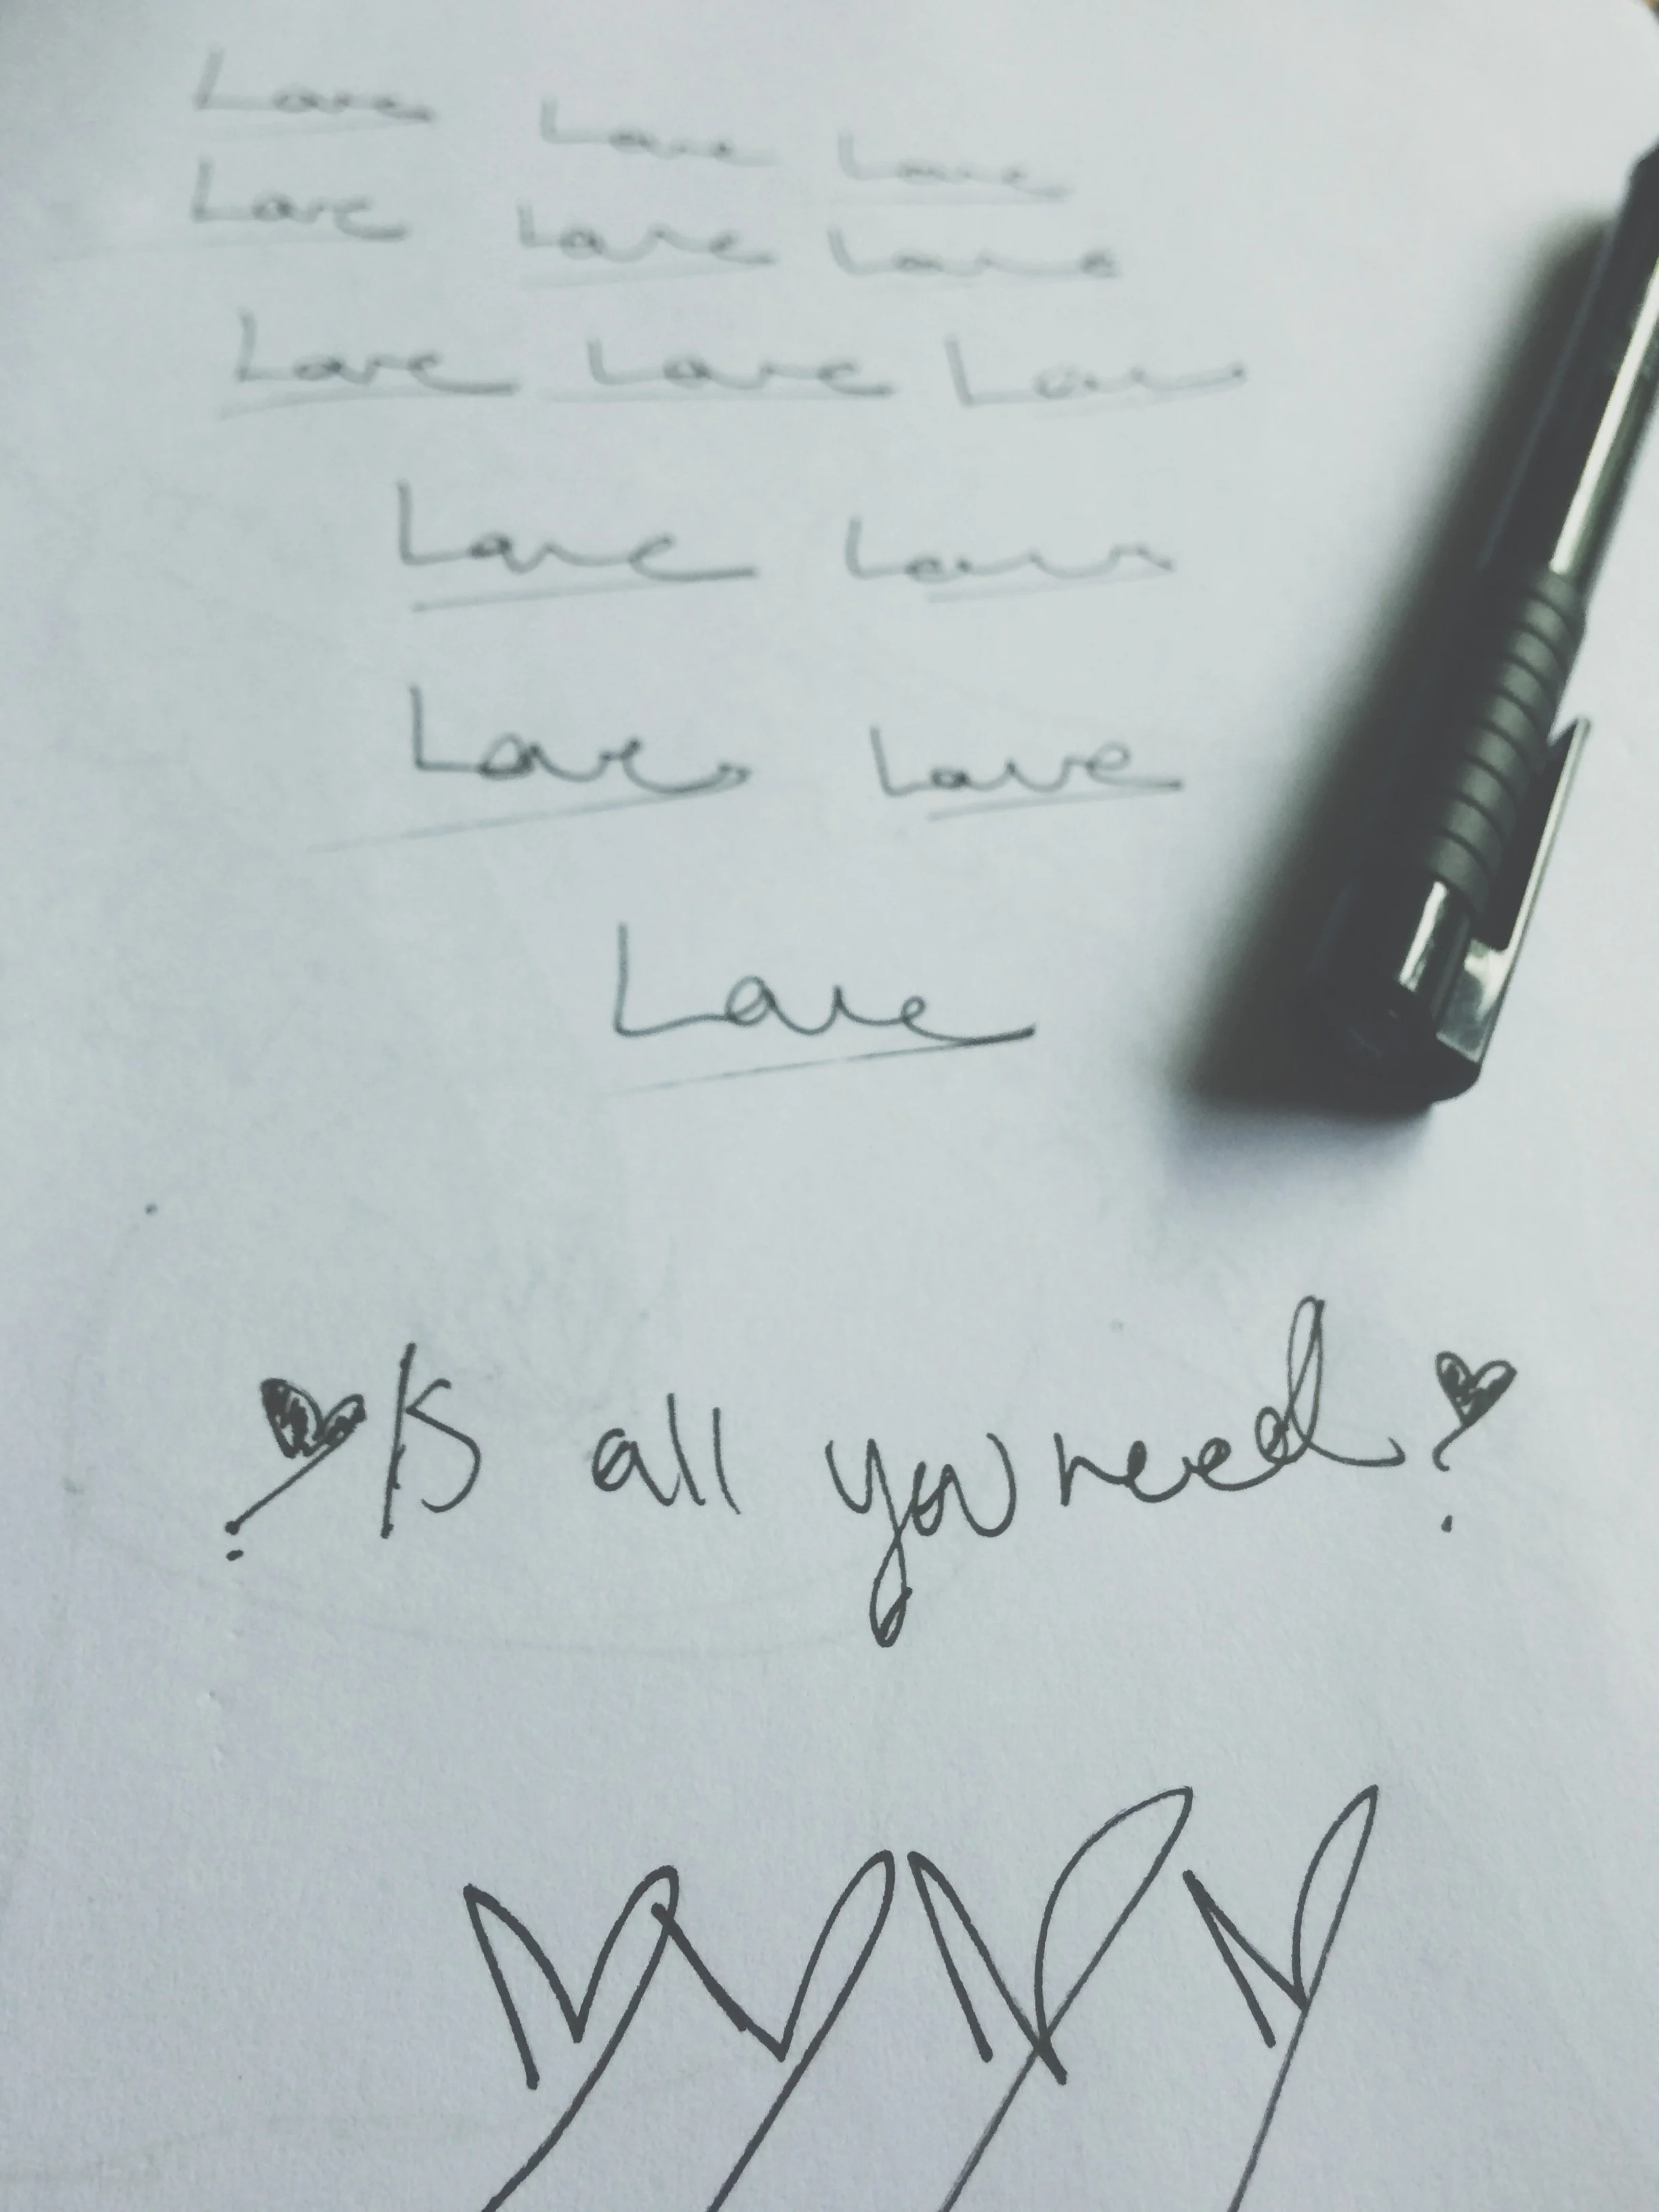 Love Love Love
Love Love Love
Love Love Love
Love Love
Love Love
Love
Is all you need